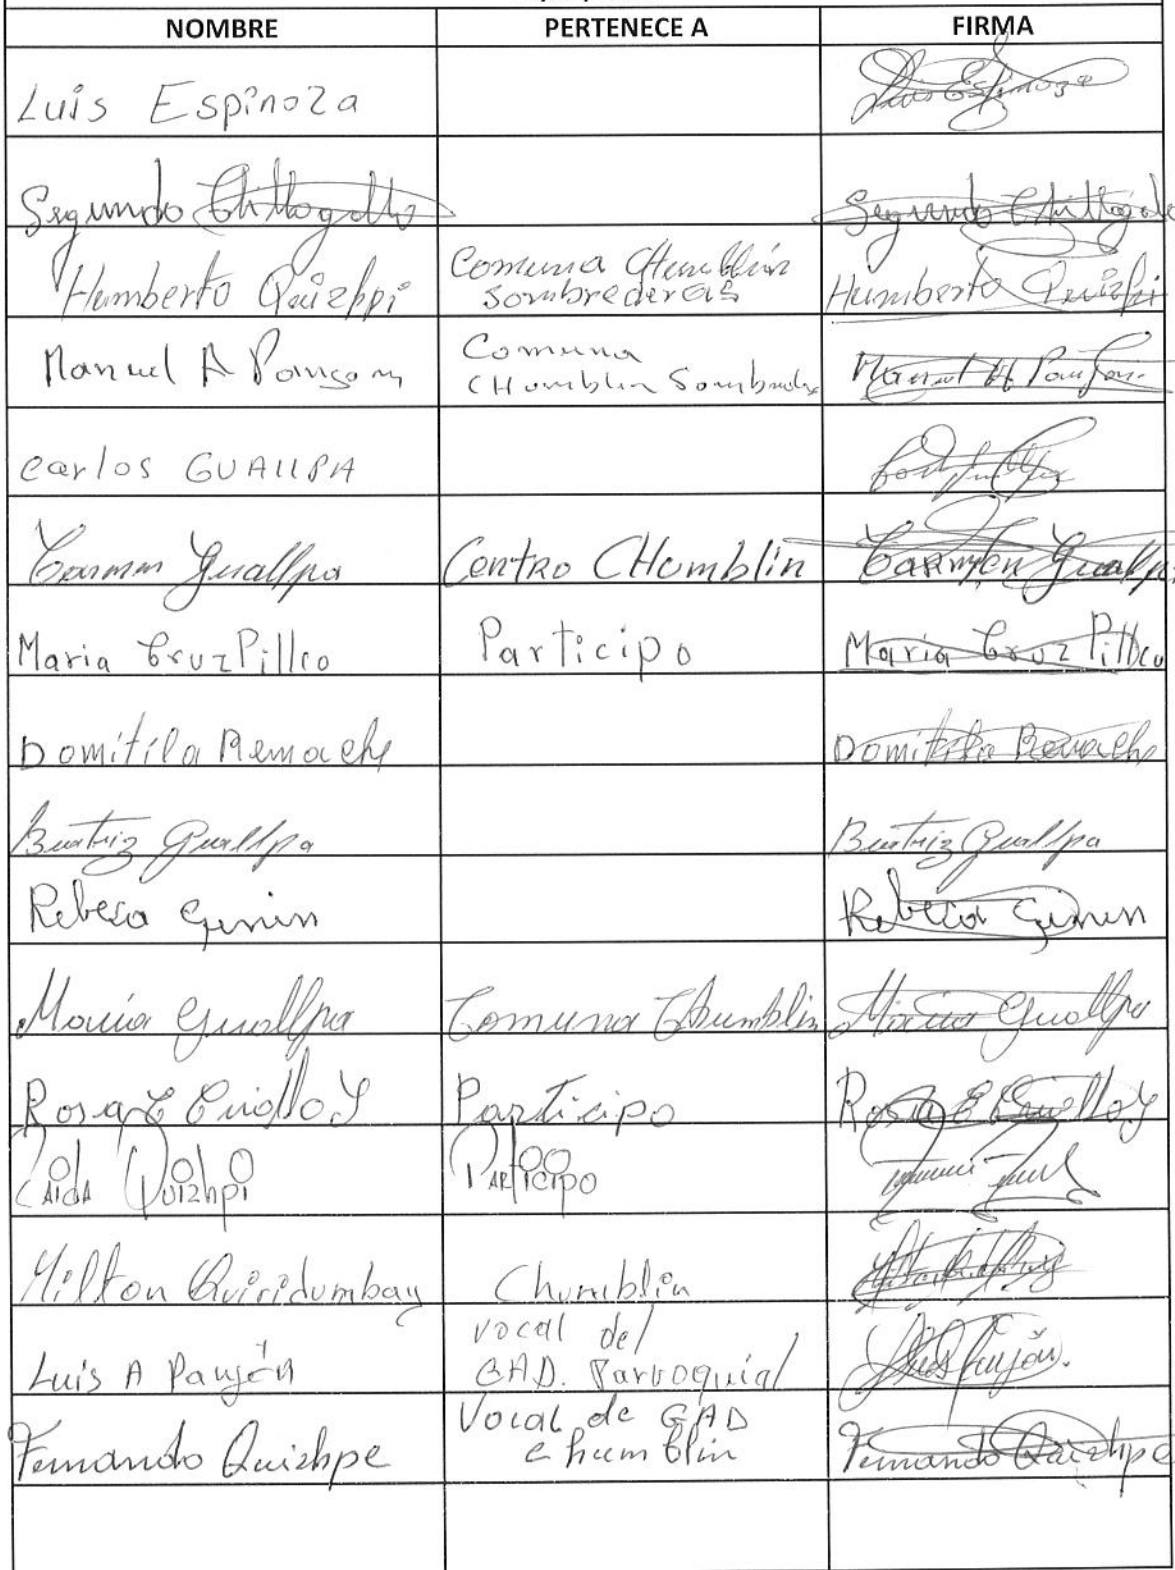 NOMBRE PERTENECE A FIRMA
Luis Espinoza Luis Espinoza
Segundo Chillogallo Segundo Chillogallo
Humberto Quizhpi Comuna Chumblin Humberto Quizhpi
Sombrederas
Manuel A Comuna Manuel
CHumblin
Carlos GUALLPA
Carmen Guallpa Centro CHumblin Carmen Guallpa
Maria Cruz Pillco Participo Maria Cruz Pillco
Domitila Remache Domitila Remache
Beatriz Guallpa Beatriz Guallpa
Rebeca Rebeca
María Guallpa Comuna Chumblin María Guallpa
Rosa E Criollo Y Participo Rosa E Criollo Y
Quizhpi Participo
Milton Quiridumbay Chumblin
Luis A Paujón vocal del Luis Paujón.
GAD. Parroquial
Fernando Quizhpe Vocal de GAD Fernando Quizhpe
chumblin